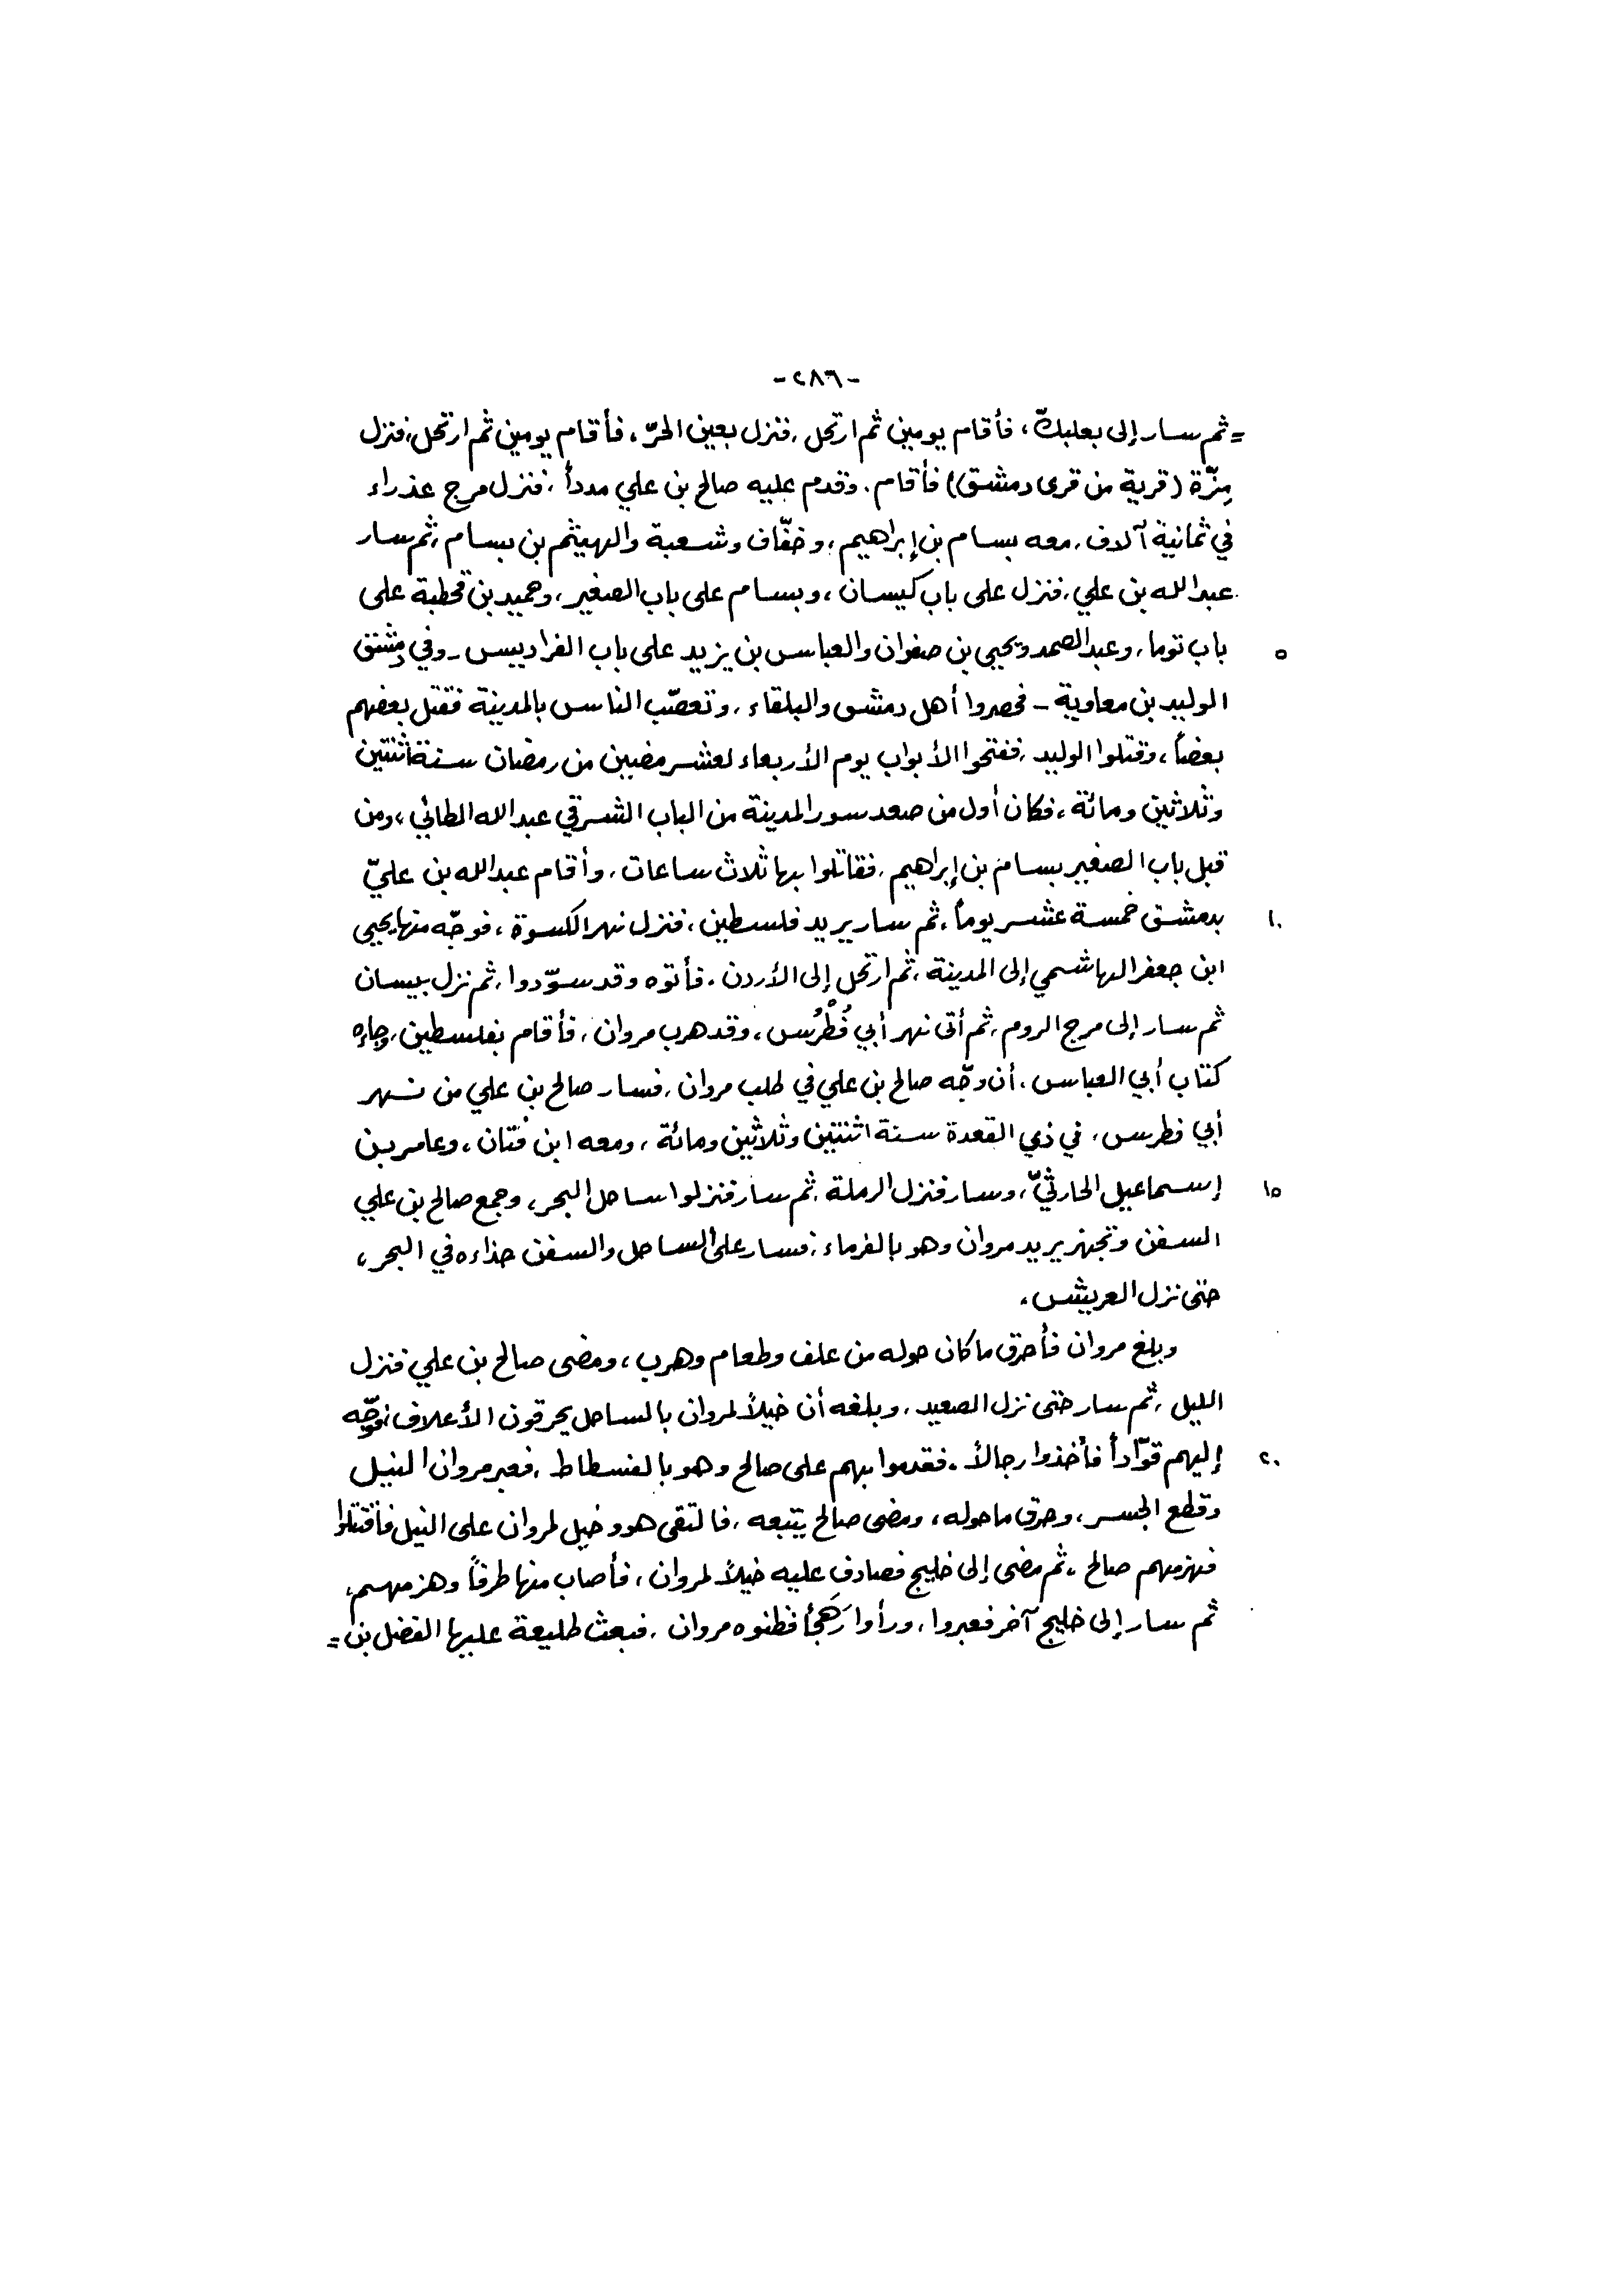 -٢٨٦-
= ثم سار إلى بعلبكّ، فأقام يومين ثم ارتحل، فنزل بعين الحرّ، فأقام يومين ثم ارتحل، فنزل
مِزّة (قرية من قرى دمشق)) فأقام. وقدم عليه صالح بن علي مدداً، فنزل مرج عذراء
في ثمانية آلاف، معه بسام بن إبراهيم، وخفّاف وشعبة والهيثم بن بسام، ثم سار
عبدالله بن علي، فنزل على باب كيسان، وبسام على باب الصغير، وحميد بن قحطبة على
باب توما، وعبدالصمد ويحيى بن صفوان والعباس بن يزيد على باب الفراديس - وفي دمشق ٥
الوليد بن معاوية - فحصروا أهل دمشق والبلقاء، وتعصّب الناس بالمدينة فقتل بعضهم
بعضاً، وقتلوا الوليد، ففتحوا الأبواب يوم الأربعاء لعشر مضين من رمضان سنة اثنتين
وثلاثين ومائة، فكان أول من صعد سور المدينة من الباب الشرقي عبدالله الطائي، ومن
قبل باب الصغير بسام بن إبراهيم، فقاتلوا بها ثلاث ساعات، وأقام عبدالله بن عليّ
بدمشق خمسة عشر يوماً، ثم سار يريد فلسطين، فنزل نهر الكسوة، فوجّه منها يحيى ١٠
ابن جعفر الهاشمي إلى المدينة، ثم ارتحل إلى الأردن. فأتوه وقد سوّدوا، ثم نزل بيسان
ثم سار إلى مرج الروم، ثم أتى نهر أبي فُطْرُس، وقد هرب مروان، فأقام بفلسطين، وجاءه
كتاب أبي العباس، أن وجّه صالح بن علي في طلب مروان، فسار صالح بن علي من نهر
أبي فطرس، في ذي القعدة سنة اثنتين وثلاثين ومائة، ومعه ابن فتان، وعامر بن
إسماعيل الحارثيّ، وسار فنزل الرملة، ثم سار فنزلوا ساحل البحر، وجمع صالح بن علي ١٥
السفن وتجهز يريد مروان وهو بالفرماء، فسار على الساحل والسفن حذاءه في البحر،
حتى نزل العريش.
وبلغ مروان فأحرق ما كان حوله من علف وطعام وهرب، ومضى صالح بن علي فنزل
الليل، ثم سار حتى نزل الصعيد، وبلغه أن خيلاً لمروان بالساحل يحرقون الأعلاف، فوجّه
إليهم قوّاداً فأخذوا رجالاً، فقدموا بهم على صالح وهو بالفسطاط، فعبر مروان النيل ٢٠
وقطع الجسر، وحرق ما حوله، ومضى صالح يتبعه، فالتقى هو وخيل لمروان على النيل فاقتتلوا
فهزمهم صالح، ثم مضى إلى خليج فصادف عليه خيلاً لمروان، فأصاب منها طرفاً وهزمهم،
ثم سار إلى خليج آخر فعبروا، ورأوا رَهَجاً فظنوه مروان، فبعث طليعة عليها الفضل بن =